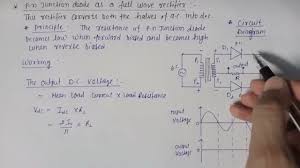 * P.n Junction diode as a full wave rectifier.
This rectifier converts both the halves of a.c into d.c
* Principle: The resistance of P.n Junction diode
becomes low when forward biased and becomes high
when reverse biased
Working:
The output D.C Voltage:-
= Mean load current × load Resistance
Vdc = Idc × RL
= 2I₀/π × RL
* Circuit
Diagram
D1
input
voltage
output
voltage